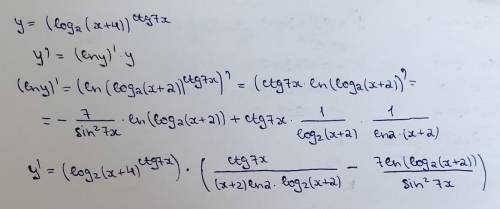 y = (log₂(x+4))^ctg7x
y' = (lny)'·y
(lny)' = (ln(log₂(x+2))^ctg7x)' = (ctg7x · ln(log₂(x+2))' =
= - 7/sin²7x · ln(log₂(x+2)) + ctg7x · 1/log₂(x+2) · 1/ln2·(x+2)
y' = (log₂(x+4)^ctg7x) · (ctg7x/(x+2)ln2·log₂(x+2) - 7ln(log₂(x+2))/sin²7x)